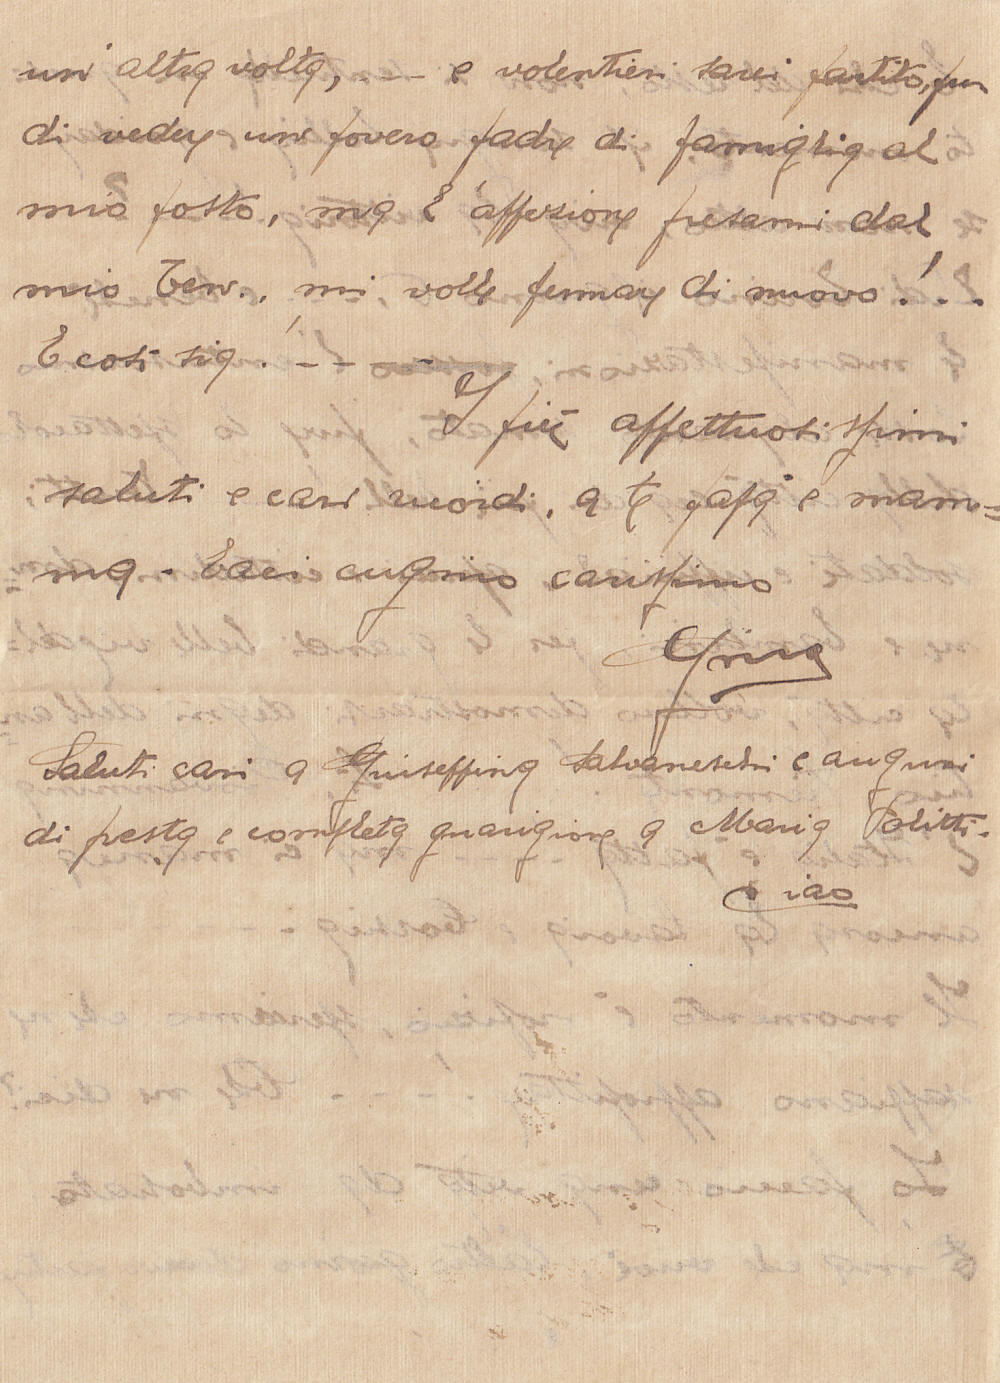 un'altra volta, --- e volentieri sarei partito, pur
di vedere un povero padre di famiglia al
mio posto, ma l'affezione presami dal
mio Ten., mi volle fermare di nuovo!...
E così sia!----
I più affettuosissimi
saluti e cari ricordi, a te papà e mam=
ma. Baci cugino carissimo
Gino
Saluti cari a Giuseppina Salvaneschi e auguri
di presta e completa guarigione a Maria Politti.
Ciao